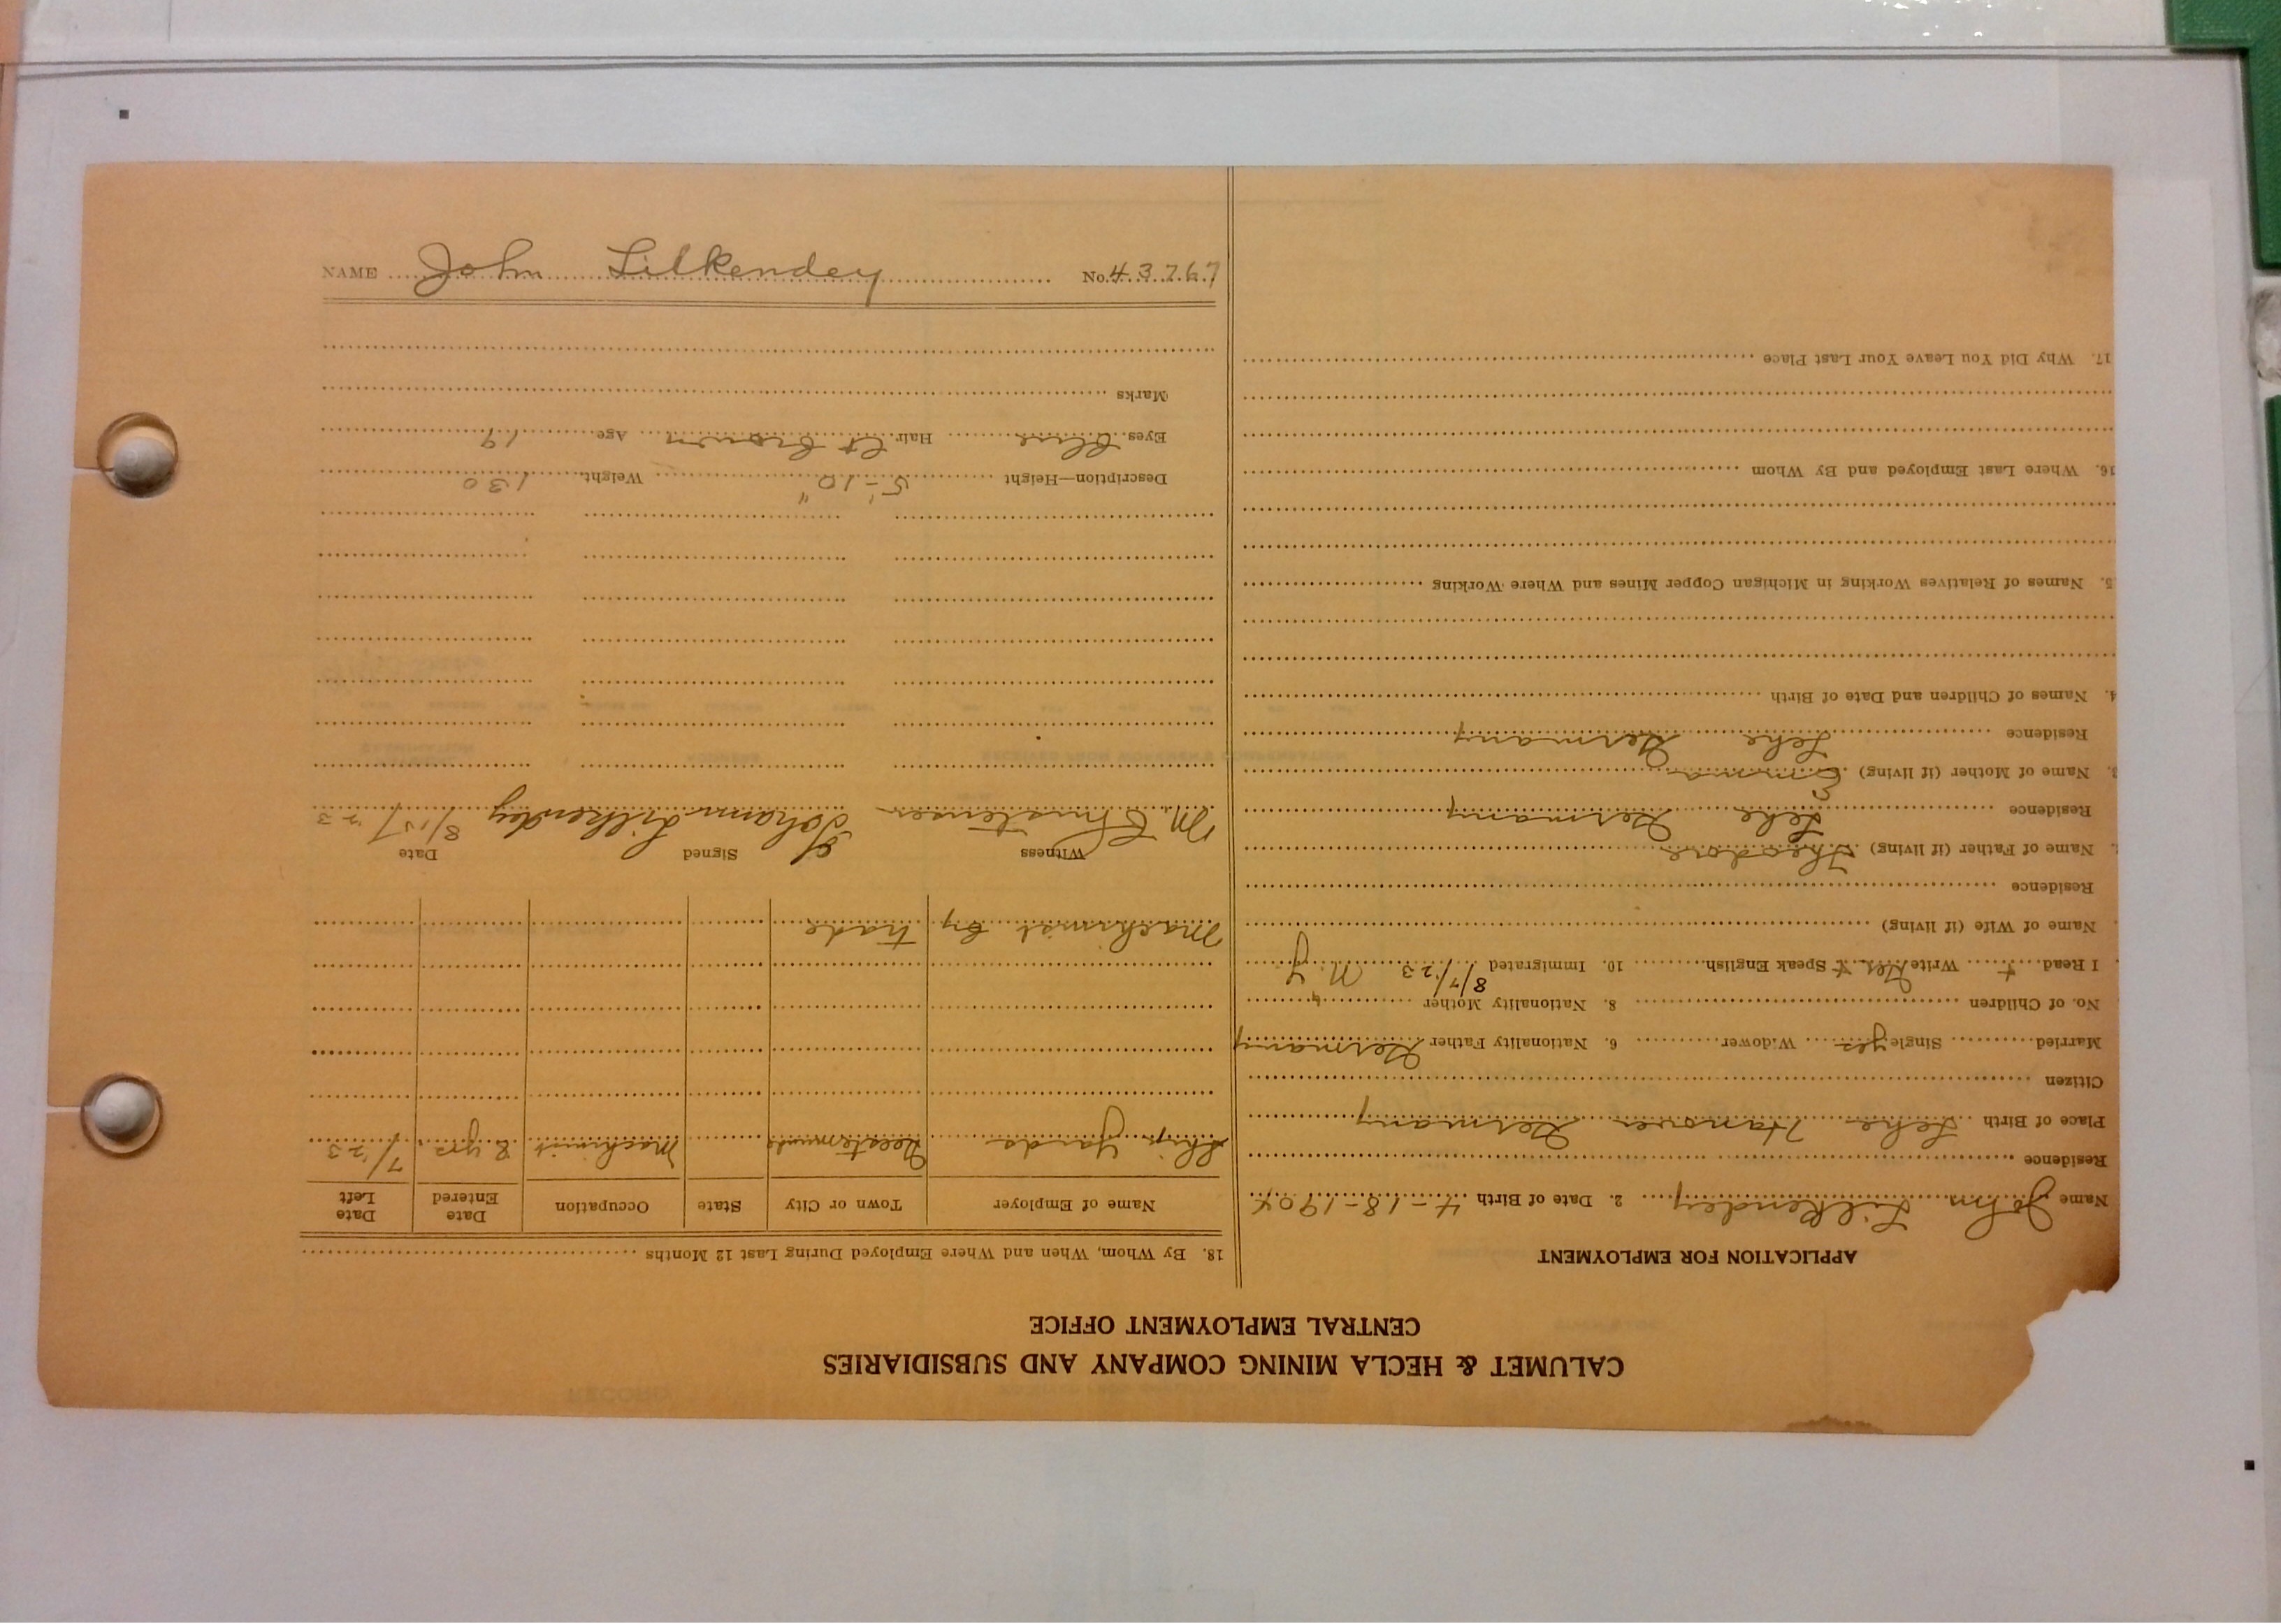 CALUMET & HECLA MINING COMPANY AND SUBSIDIARIES
CENTRAL EMPLOYMENT OFFICE
APPLICATION FOR EMPLOYMENT
Name John Lilkendey 2. Date of Birth 4-18-1904
Residence
Place of Birth Lehe Hanover Germany
Citizen
Married Single yes Widower 6. Nationality Father Germany
No. of Children 8. Nationality Mother "
I Read + Write Ger + Speak English 10. Immigrated 8/7/23 N. Y
Name of Wife (if living)
Residence
Name of Father (if living) Theodore
Residence Lehe Germany
3. Name of Mother (if living) Emma
Residence Lehe Germany
4. Names of Children and Date of Birth
5. Names of Relatives Working in Michigan Copper Mines and Where Working
16. Where Last Employed and By Whom
17. Why Did You Leave Your Last Place
18. By Whom, When and Where Employed During Last 12 Months
Name of Employer Town or City State Occupation Date Entered Date Left
Ship Yards Machinist 8 yrs 7/23
Machinist by trade
Witness Signed Date
M. Christensen Johann Lilkendey 8/15/23
Description—Height 5'-10" Weight 130
Eyes blue Hair lt brown Age 19
Marks
NAME John Lilkendey No. 43767